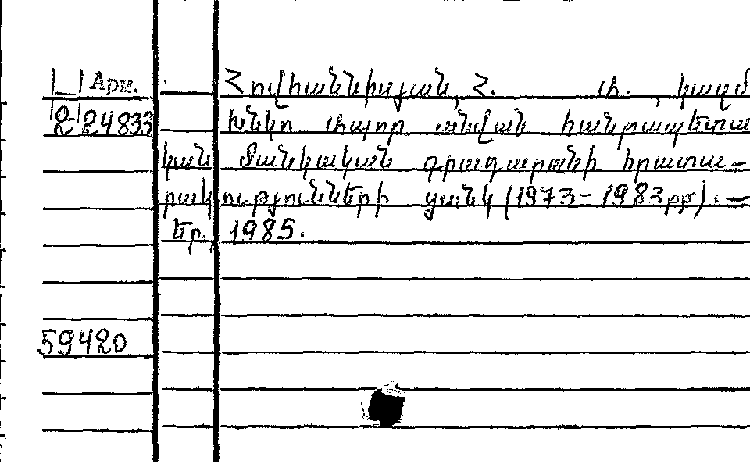 Арм.
Հովհաննիսյան, Հ. Ա., կազմ
2 24833
Խնկո Ապոր անվան հանրապետա
կան մանկական գրադարանի հրատա-
րակությունների ցանկ (1973-1983թթ). -
Եր., 1985.
59420